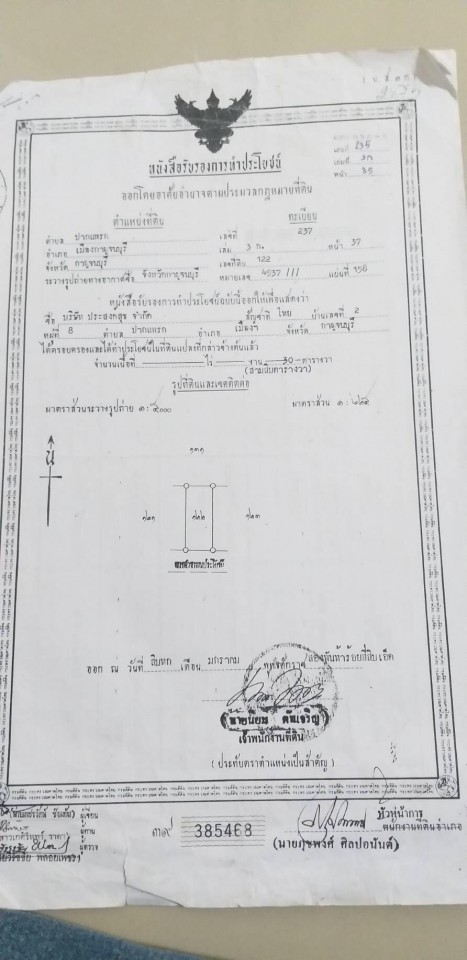 หนังสือรับรองการทำประโยชน์
เลขที่ 235
เล่มที่
หน้า 35
ออกโดยอาศัยอำนาจตามประมวลกฎหมายที่ดิน
ตำแหน่งที่ดิน ทะเบียน
ตำบล ปากแพรก เลขที่ 237
อำเภอ เมืองกาญจนบุรี เล่ม 3 ก. หน้า 37
จังหวัด กาญจนบุรี เลขที่ดิน 122
ระวางรูปถ่ายทางอากาศชื่อ จังหวัดกาญจนบุรี หมายเลข 4837 III แผ่นที่ 158
หนังสือรับรองการทำประโยชน์ฉบับนี้ออกให้เพื่อแสดงว่า
ชื่อ บริษัท ประสงคสุข จำกัด สัญชาติ ไทย บ้านเลขที่ 2
หมู่ที่ 8 ตำบล ปากแพรก อำเภอ เมืองฯ จังหวัด กาญจนบุรี
ได้ครอบครองและได้ทำประโยชน์ในที่ดินแปลงที่กล่าวข้างต้นแล้ว
จำนวนเนื้อที่ ไร่ งาน 30 ตารางวา
(สามสิบตารางวา)
รูปที่ดินและเขตติดต่อ
มาตราส่วนระวางรูปถ่าย ๑ : ๕๐๐๐ มาตราส่วน ๑ :
น
๑๓๑
๑๒๑ ๑๒๒ ๑๒๓
ทางสาธารณประโยชน์
ออก ณ วันที่ สิบหก เดือน มกราคม พุทธศักราช สองพันห้าร้อยสี่สิบเอ็ด
เจ้าพนักงานที่ดิน
(ประทับตราตำแหน่งเป็นสำคัญ)
ผู้เขียน
ผู้ทาน
ผู้ตรวจ
๓๙ 385468
หัวหน้าการ
พนักงานที่ดินอำเภอ